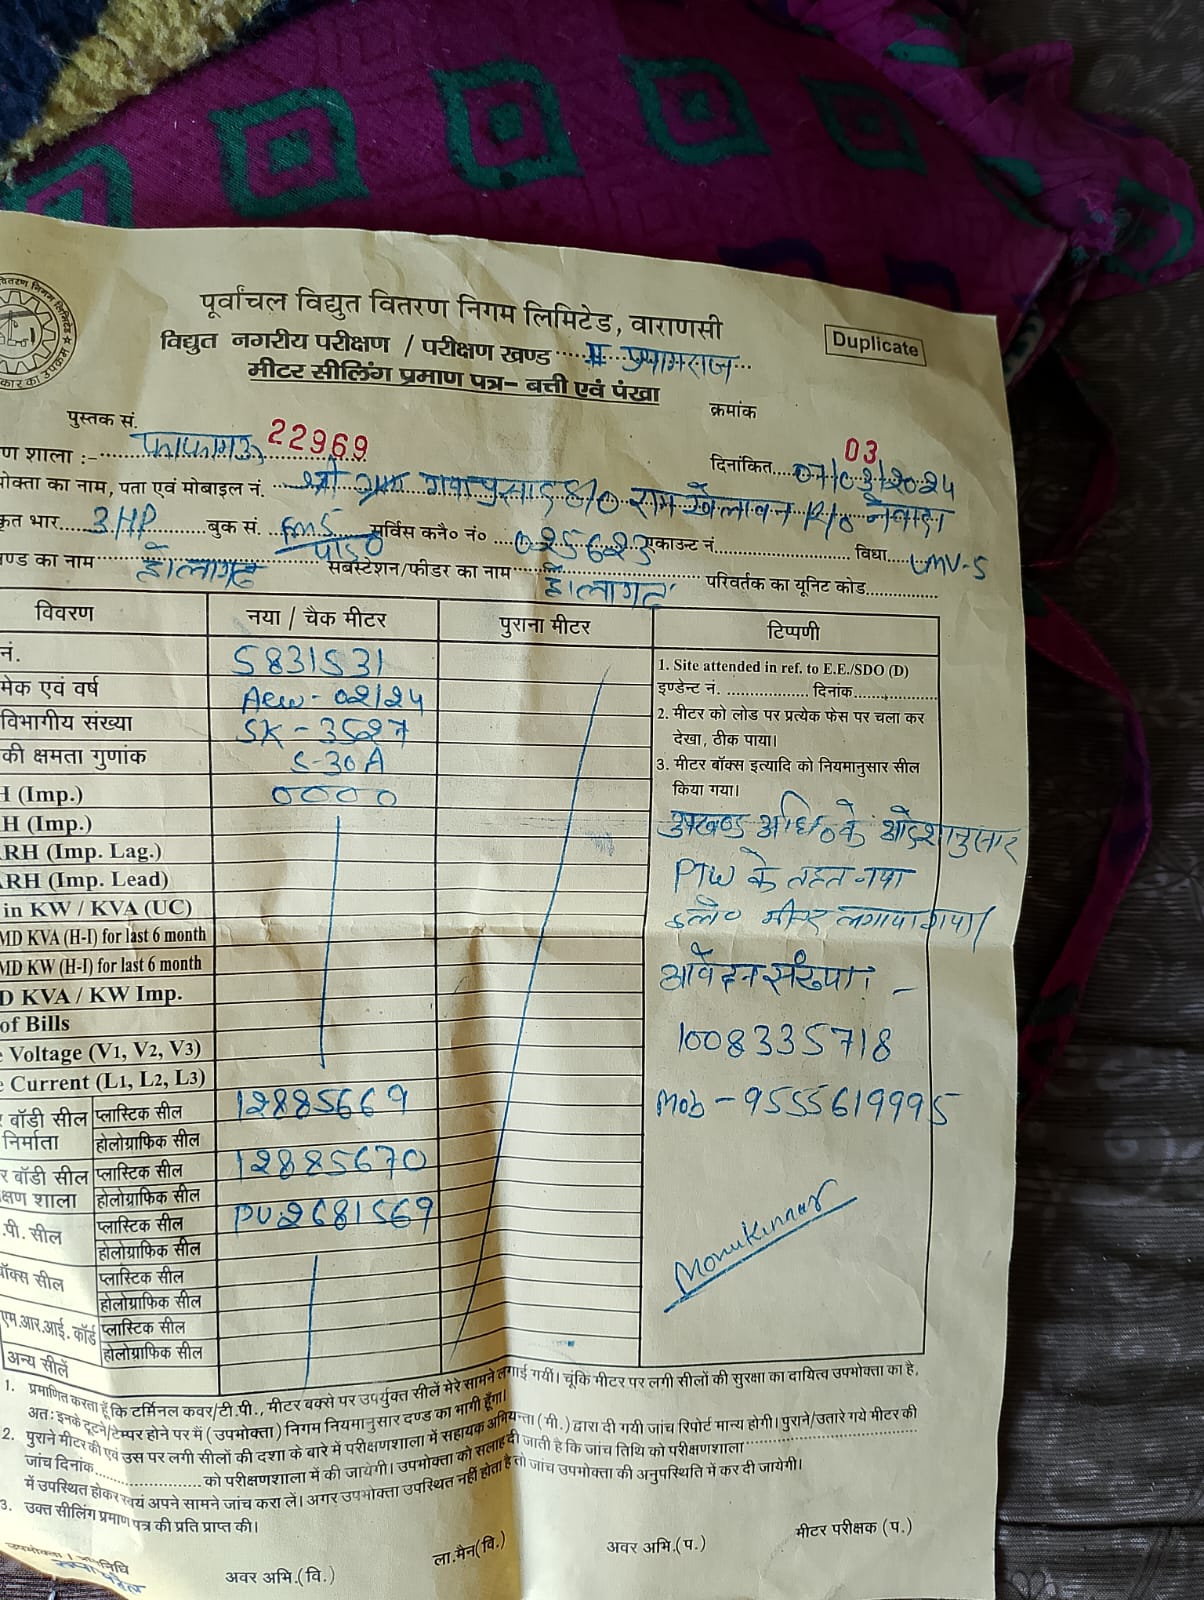 पूर्वांचल विद्युत वितरण निगम लिमिटेड, वाराणसी
Duplicate
विद्युत नगरीय परीक्षण / परीक्षण खण्ड ..... II ... प्रयागराज...
मीटर सीलिंग प्रमाण पत्र– बत्ती एवं पंखा
पुस्तक सं. 22969 क्रमांक 03
ण शाला :-........ फाफामऊ दिनांकित... 07/03/2024
ोक्ता का नाम, पता एवं मोबाइल नं. श्री गयाप्रसाद S/O राम खेलावन R/O नेवादा
कृत भार.... 3HP ..... बुक सं. सर्विस कनै० नं० .... 025623 एकाउन्ट नं................. विधा.... LMV-5
ण्ड का नाम होलागढ़ सबस्टेशन/फीडर का नाम होलागढ़ परिवर्तक का यूनिट कोड...............
विवरण नया / चैक मीटर पुराना मीटर टिप्पणी
नं. 5831531
मेक एवं वर्ष 02/24
विभागीय संख्या SK-3527
की क्षमता गुणांक 5-30A
H (Imp.) 0000
H (Imp.)
RH (Imp. Lag.)
RH (Imp. Lead)
in KW / KVA (UC)
MD KVA (H-I) for last 6 month
MD KW (H-I) for last 6 month
D KVA / KW Imp.
of Bills
e Voltage (V1, V2, V3)
e Current (L1, L2, L3)
र बॉडी सील प्लास्टिक सील 12885669
निर्माता होलोग्राफिक सील
र बॉडी सील प्लास्टिक सील 12885670
क्षण शाला होलोग्राफिक सील
.पी. सील प्लास्टिक सील PU2681569
होलोग्राफिक सील
बॉक्स सील प्लास्टिक सील
होलोग्राफिक सील
एम.आर.आई. कॉर्ड प्लास्टिक सील
होलोग्राफिक सील
अन्य सीलें
1. Site attended in ref. to E.E./SDO (D)
इण्डेन्ट नं. ................. दिनांक.................
2. मीटर को लोड पर प्रत्येक फेस पर चला कर
देखा, ठीक पाया।
3. मीटर बॉक्स इत्यादि को नियमानुसार सील
किया गया।
उपखण्ड अधि० के आदेशानुसार
PTW के तहत नया
इले० मीटर लगाया गया।
आवेदन संख्या: –
1008335718
Mob – 9555619995
Monukumar
1. प्रमाणित करता हूँ कि टर्मिनल कवर/टी.पी., मीटर बक्से पर उपर्युक्त सीलें मेरे सामने लगाई गयीं। चूंकि मीटर पर लगी सीलों की सुरक्षा का दायित्व उपभोक्ता का है,
अतः इनके टूटने/टेम्पर होने पर मैं (उपभोक्ता) निगम नियमानुसार दण्ड का भागी हूँगा।
2. पुराने मीटर की एवं उस पर लगी सीलों की दशा के बारे में परीक्षणशाला में सहायक अभियन्ता (मी.) द्वारा दी गयी जांच रिपोर्ट मान्य होगी। पुराने/उतारे गये मीटर की
जांच दिनांक..................... को परीक्षणशाला में की जायेगी। उपभोक्ता को सलाह दी जाती है कि जांच तिथि को परीक्षणशाला
में उपस्थित होकर स्वयं अपने सामने जांच करा लें। अगर उपभोक्ता उपस्थित नहीं होता है तो जांच उपभोक्ता की अनुपस्थिति में कर दी जायेगी।
3. उक्त सीलिंग प्रमाण पत्र की प्रति प्राप्त की।
अवर अभि.(वि.) ला.मैन(वि.) अवर अभि.(प.) मीटर परीक्षक (प.)